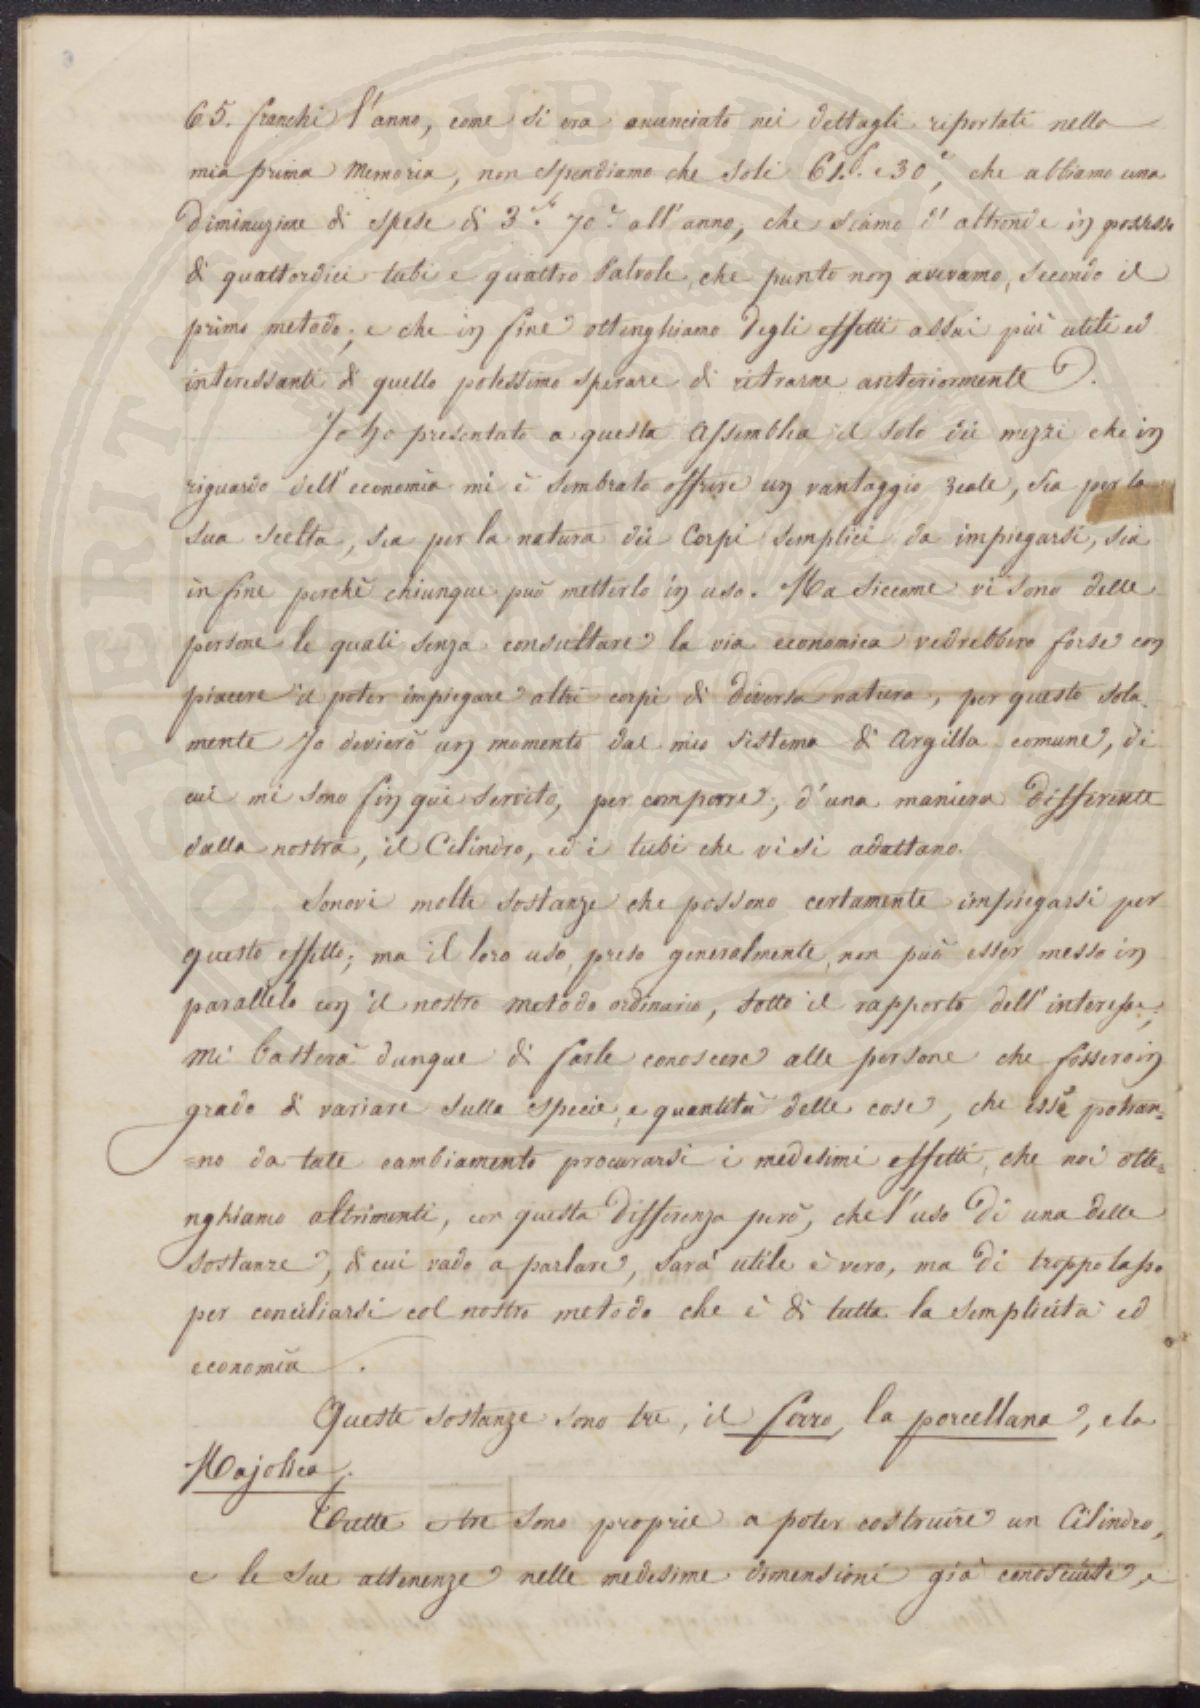 65. franchi l'anno, come si era anunciato nei dettagli riportati nella
mia prima Memoria, non spendiamo che soli 61.f. e 30c, che abbiamo una
diminuzione di spese di 3.f. 70c all'anno, che siamo d'altronde in possesso
di quattordici tubi e quattro Valvole, che punto non avevamo, secondo il
primo metodo; e che in fine ottenghiamo degli effetti assai più utili ed
interessanti di quello potessimo sperare di ritrarne anteriormente.
Jo ho presentato a questa Assemblea il solo dei mezzi che in
riguardo dell'economia mi è sembrato offrire un vantaggio reale, sia per la
sua scelta, sia per la natura dei Corpi semplici da impiegarsi, sia
in fine perchè chiunque può metterlo in uso. Ma siccome vi sono delle
persone le quali senza consultare la via economica vedrebbero forse con
piacere il poter impiegare altri corpi di diversa natura, per questo sola-
mente Jo devierò un momento dal mio sistema di Argilla comune, di
cui mi sono fin qui servito, per comporre, d'una maniera differente
dalla nostra, il Cilindro, ed i tubi che vi si adattano.
Sonovi molte sostanze che possono certamente impiegarsi per
questo effetto; ma il loro uso, preso generalmente, non può esser messo in
parallelo con il nostro metodo ordinario, sotto il rapporto dell'interesse;
Mi basterà dunque di farle conoscere alle persone che fossero in
grado di variare sulla specie, e quantità delle cose, che esse potran=
=no da tale cambiamento procurarsi i medesimi effetti, che noi otte=
nghiamo altrimenti, con questa differenza però, che l'uso di una delle
sostanze, di cui vado a parlare, sarà utile è vero, ma di troppo lasso
per conciliarsi col nostro metodo che è di tutta la semplicità ed
economia.
Queste sostanze sono tre, il ferro, la porcellana, e la
Majolica.
Tutte e tre sono proprie a poter costruire un Cilindro,
e le sue attenenze nelle medesime dimensioni già conosciute, e